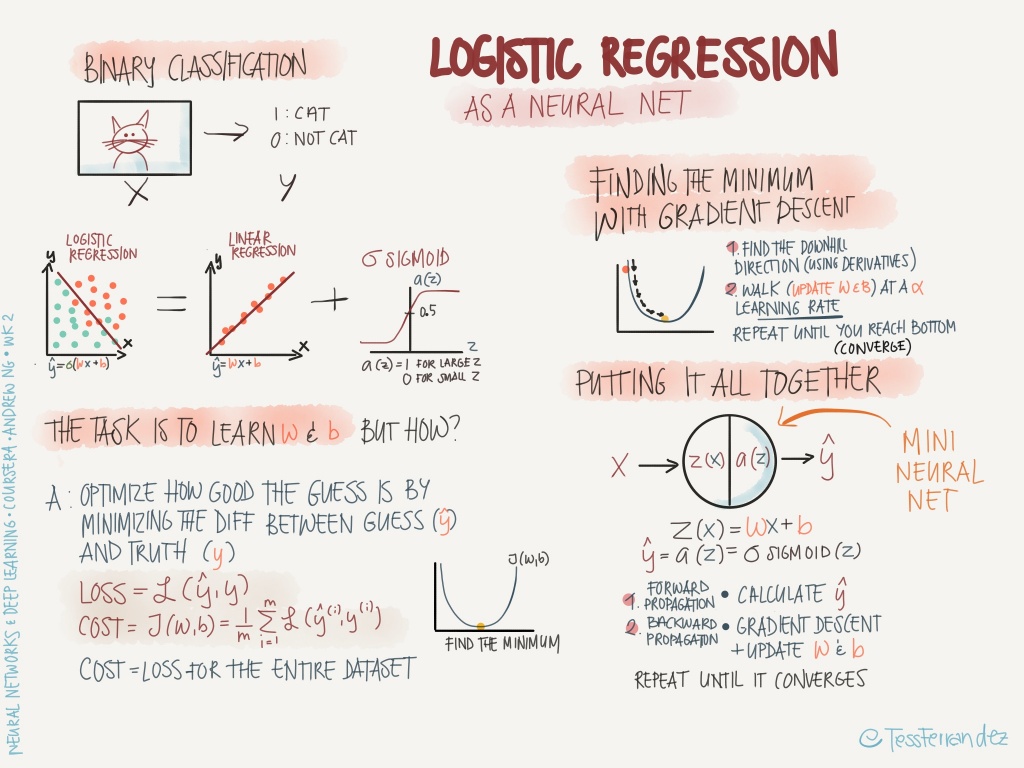 LOGISTIC REGRESSION
AS A NEURAL NET
BINARY CLASSIFICATION
1: CAT
0: NOT CAT
X
Y
LOGISTIC
REGRESSION
y
x
ŷ=σ(wx+b)
=
LINEAR
REGRESSION
y
x
ŷ=wx+b
+
σ SIGMOID
a(z)
0.5
z
a(z)=1 FOR LARGE z
0 FOR SMALL z
THE TASK IS TO LEARN w & b BUT HOW?
A: OPTIMIZE HOW GOOD THE GUESS IS BY
MINIMIZING THE DIFF BETWEEN GUESS (ŷ)
AND TRUTH (y)
LOSS = ℒ(ŷ,y)
COST = J(w,b) = 1/m Σ_{i=1}^{m} ℒ(ŷ^(i), y^(i))
COST = LOSS FOR THE ENTIRE DATASET
J(w,b)
FIND THE MINIMUM
FINDING THE MINIMUM
WITH GRADIENT DESCENT
1. FIND THE DOWNHILL
DIRECTION (USING DERIVATIVES)
2. WALK (UPDATE w & b) AT A α
LEARNING RATE
REPEAT UNTIL YOU REACH BOTTOM
(CONVERGE)
PUTTING IT ALL TOGETHER
X
z(x)
a(z)
ŷ
MINI
NEURAL
NET
z(x) = wx+b
ŷ = a(z) = σ SIGMOID(z)
1. FORWARD
PROPAGATION • CALCULATE ŷ
2. BACKWARD
PROPAGATION • GRADIENT DESCENT
+ UPDATE w & b
REPEAT UNTIL IT CONVERGES
NEURAL NETWORKS & DEEP LEARNING • COURSERA • ANDREW NG • WK 2
@TessFerrandez